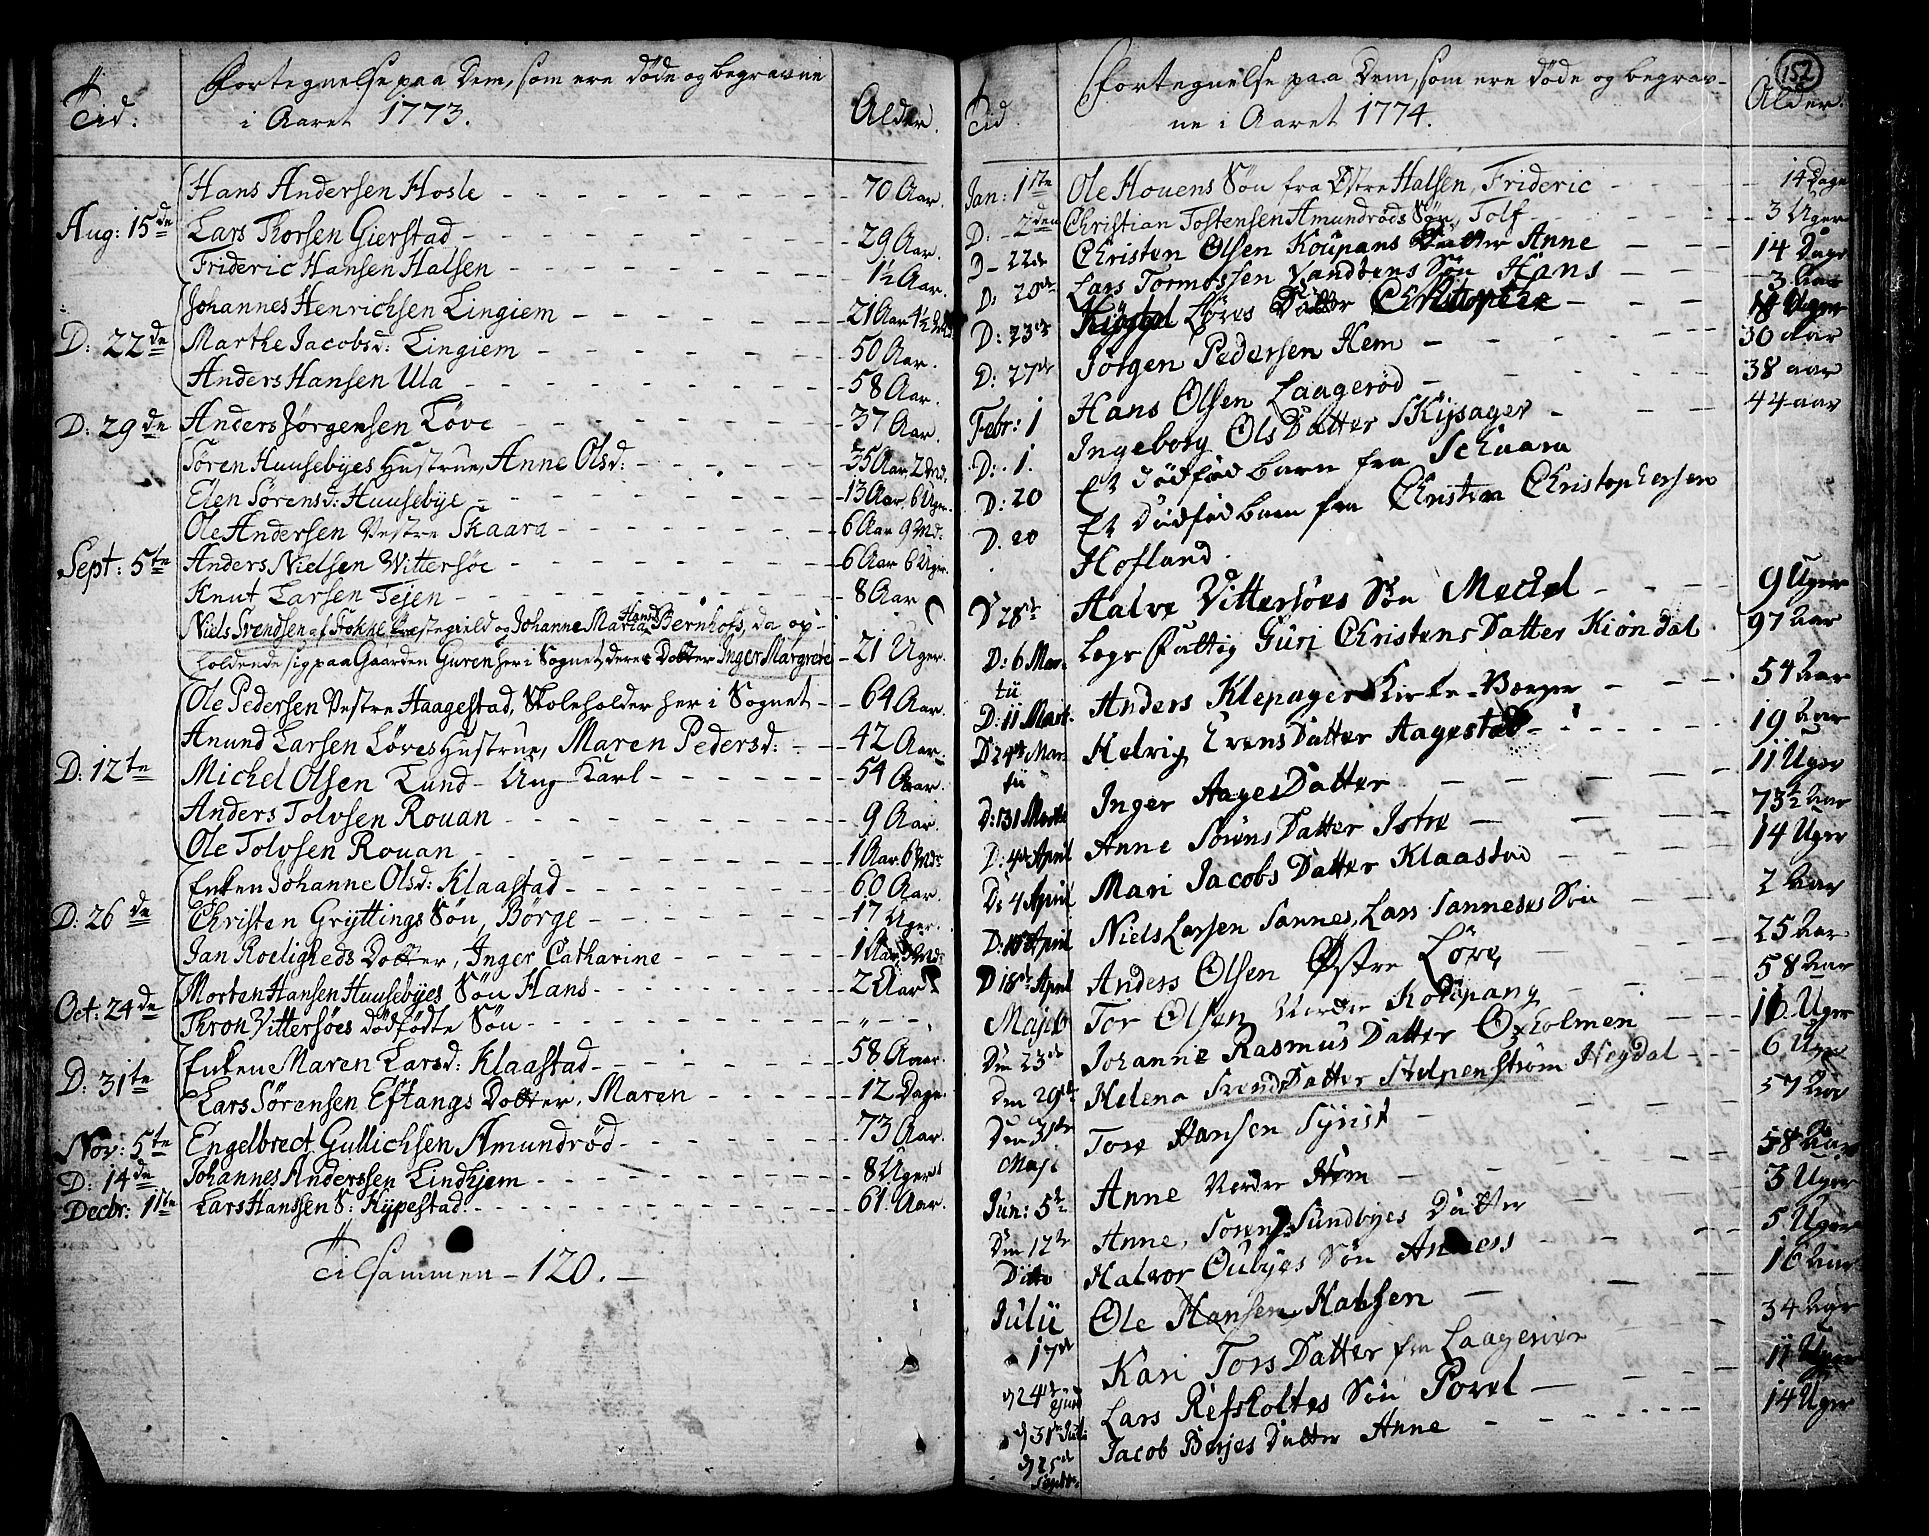 Tid. Fortegnelse paa Dem, som ere døde og begravne Alder.
i Aaret 1773.
Hans Andersen Hosle 70 Aar.
Aug: 15de Lars Thorsen Gierstad 29 Aar.
Frideric Hansen Halsen 1½ Aar.
Johannes Henrichsen Lingiem 21 Aar 4½
D: 22de Marthe Jacobsd: Lingiem 50 Aar.
Anders Hansen Ula 58 Aar.
D: 29de Anders Jørgensen Løve 37 Aar.
Søren Huusebyes Hustrue, Anne Olsd: 35 Aar 2 Md.
Elen Sørensd: Huusebye 13 Aar, 6 Uger.
Ole Andersen Vestre Skaara 6 Aar 9 Md:
Sept: 5te Anders Nielsen Wittersøe 6 Aar 6 Uger.
Knut Larsen Tejen 8 Aar
Niels Svendsen af Stokke Præstegield og Johanne Maria Hansd Bernhofs, da op-
holdende sig paa Gaarden Guren her i Sognet, deres Dotter Inger Margrete 21 Uger.
Ole Pedersen Vestre Haagestad, Skoleholder her i Sognet 64 Aar.
Anund Larsen Løves Hustrue, Maren Pedersd: 42 Aar.
D: 12te Michel Olsen Lund - Ung Karl 54 Aar.
Anders Tolvsen Rouan 9 Aar.
Ole Tolvsen Rouan 1 Aar 6 Md:
Enken Johanne Olsd: Klaastad 60 Aar.
D: 26de Christen Gryttings Søn, Børge 17 Uger.
Jan Roeligheds Dotter, Inger Catharine 1 Aar, Md:
Morten Hansen Huusebyes Søn Hans 2 Aar
Oct: 24de Thron Vittersøes dødfødte Søn
Enkene Maren Larsd: Klaastad 58 Aar.
D: 31te Lars Sørensen Eftangs Dotter, Maren 12 Dage.
Nov: 5te Engelbrect Gullichsen Amundrød 73 Aar.
D: 14de Johannes Anderssen Lindhjem 8 Uger
Decbr: 11te Lars Hanssen S: Kijpestad 61 Aar.
Tilsammen - 120.
152
Tid Fortegnelse paa Dem, som ere døde og begrav- Alder.
ne i Aaret 1774.
Jan: 1ste Ole Houens Søn fra Østre Halsen, Frideric 14 Dage
D: 2den Christian Tostensen Amundrøds Søn, Tolf 3 Uger
D 22de Christen Olsen Koupans Datter Anne 14 Dage
D: 20de Lars Tormossen Vandbens Søn Hans 3 Aar
D: 23de Løves Datter 18 Uger
D: 27de Jörgen Pedersen Hem 30 Aar
Febr: 1 Hans Olsen Laagerød 38 aar
D: 1. Ingeborg Ols Datter Skijsager 44 aar
D: 20 Et dödföd barn fra Schaara
D. 20 Et Dødfød barn fra Christen Christophersen
Hofland.
D 28de Halve Vittersöes Søn Mechel 9 Uger
D: 6 Mar- Lægs Fattig Guri Christens Datter Kiöndal 97 Aar
tii
D: 11 Mart: Anders Klepager Kirke-Værge 54 Aar
D 24de Mar- Helvig Evens Datter Aagestad 19 Aar
tii
D: 31 Martii Inger Aages Datter 11 Uger
D: 4de April Anne Sörens Datter Istre 73½ Aar
D: 4 April Mari Jacobs Datter Klaastad 14 Uger
D: 10 April Niels Larsen Sannes, Lars Sanneses Sön 2 Aar
D 18de April Anders Olsen Østre Löve 25 Aar
Maji Tor Olsen Nordre Kolpang 58 Aar
Den 23de Johanne Rasmus Datter Oxholmen 16 Uger
Den 29de Helena Svends Datter Stolpenstrøm Negdal 6 Uger
Den 31te Tore Hansen Syrist 57 Aar
Maji
Jun: 5te Anne Nordre Hem 58 Aar
Den 12te Anne, Sören Sundbyes Datter 3 Uger
Ditto Halvor Oulyes Søn Anness 5 Uger
Julii Ole Hansen Halsen 16 Aar
17de Kari Tors Datter fra Laageriør 34 Aar
d 24de Lars Refsholtes Søn Povel 11 Uger
d 31te Juli Jacob Berjes Datter Anne 14 Uger
d 25de
Septbr.